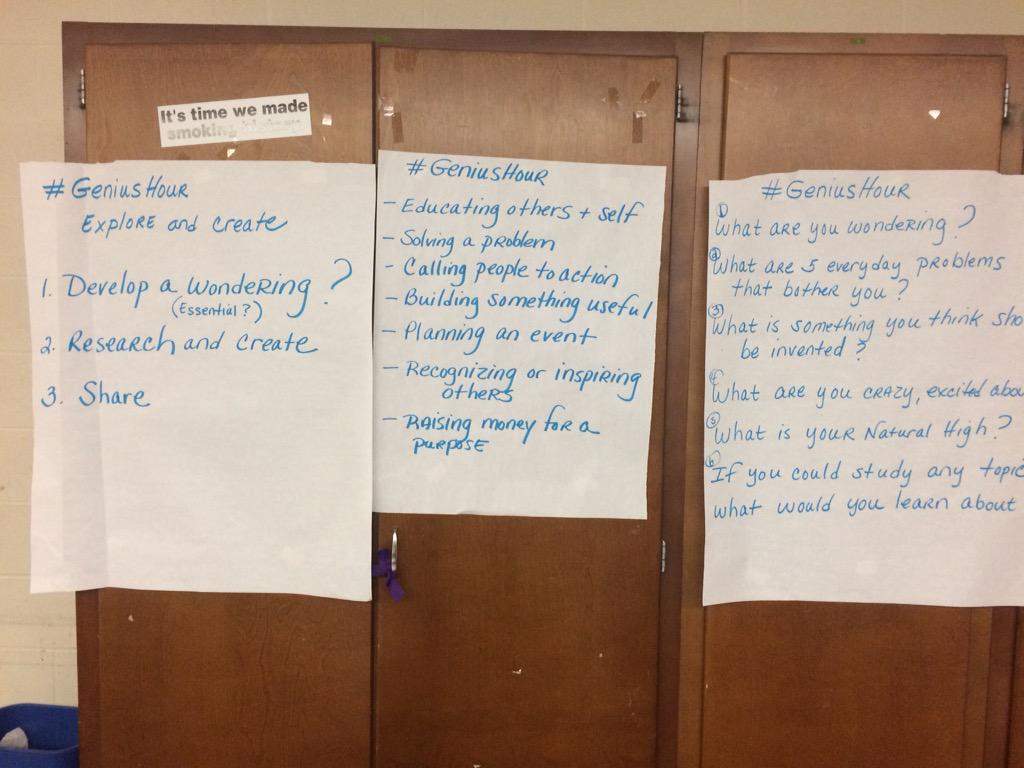 It's time we made
smoking
#GeniusHour
Explore and create
1. Develop a wondering?
(Essential?)
2. Research and create
3. Share
#GeniusHour
- Educating others + self
- Solving a problem
- Calling people to action
- Building something useful
- Planning an event
- Recognizing or inspiring
others
- Raising money for a
purpose
#GeniusHour
① What are you wondering?
② What are 5 everyday problems
that bother you?
③ What is something you think sho
be invented?
④ What are you crazy, excited abou
⑤ What is your Natural High?
⑥ If you could study any topic
what would you learn about